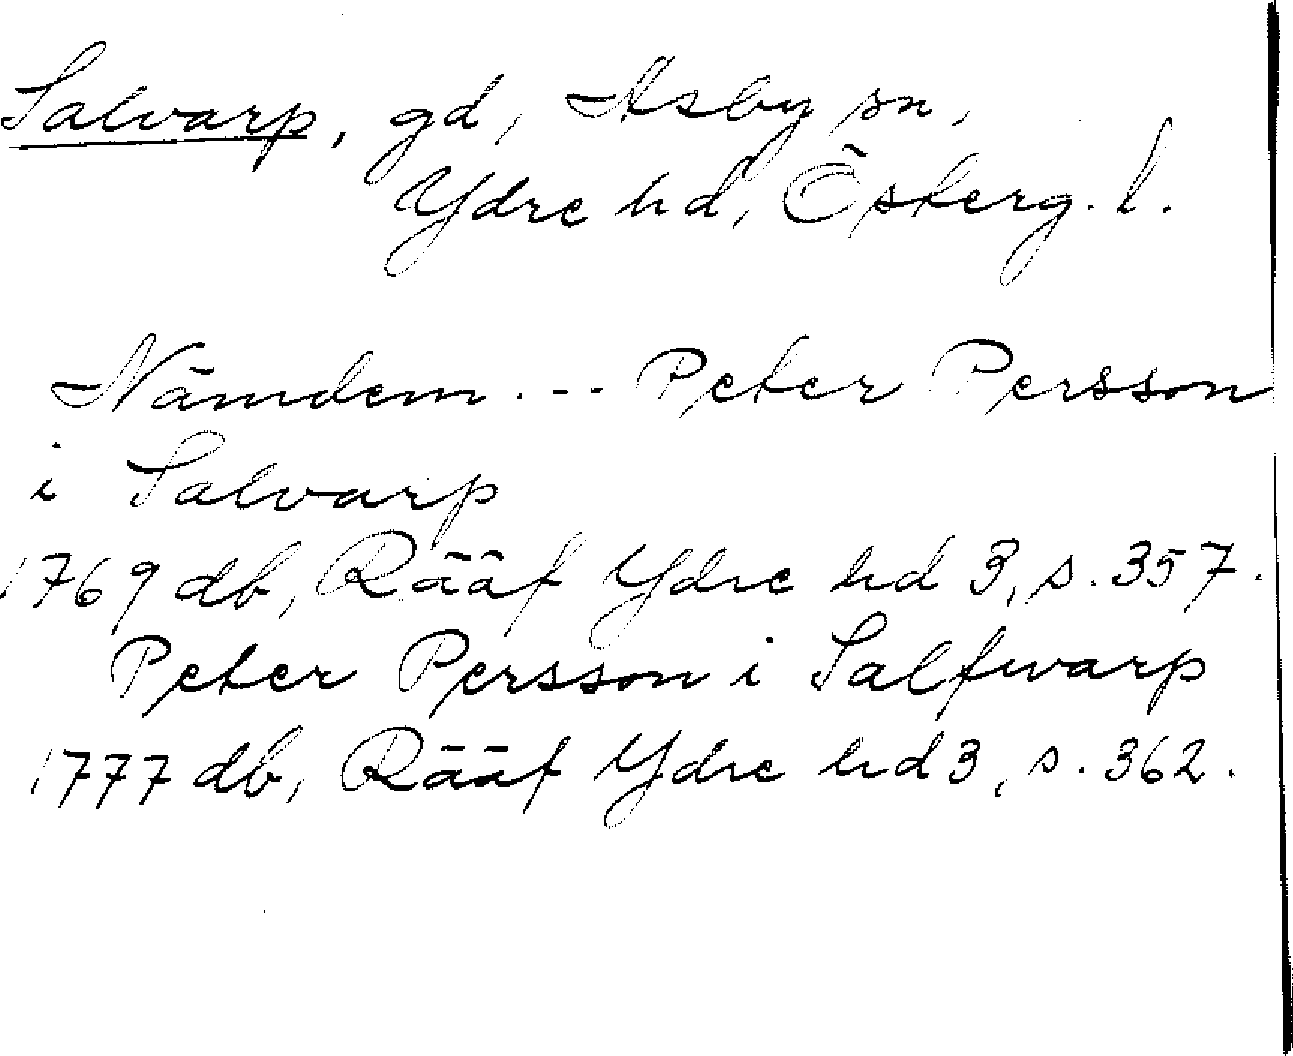 Salvarp, gd, Asby sn,
Ydre hd, Österg. l.
Nämdem . - - Peter Persson
i Salvarp
1769 db, Rääf Ydre hd 3, s. 357.
Peter Persson i Salfwarp
1777 db, Rääf Ydre hd 3, s. 362.